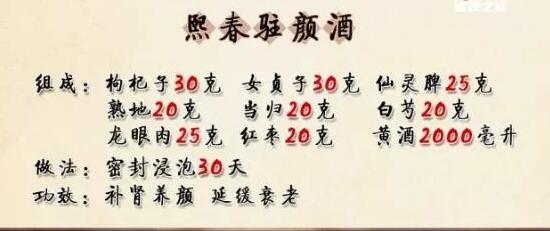 熙春驻颜酒
组成：枸杞子30克 女贞子30克 仙灵脾25克
熟地20克 当归20克 白芍20克
龙眼肉25克 红枣20克 黄酒2000毫升
做法：密封浸泡30天
功效：补肾养颜 延缓衰老